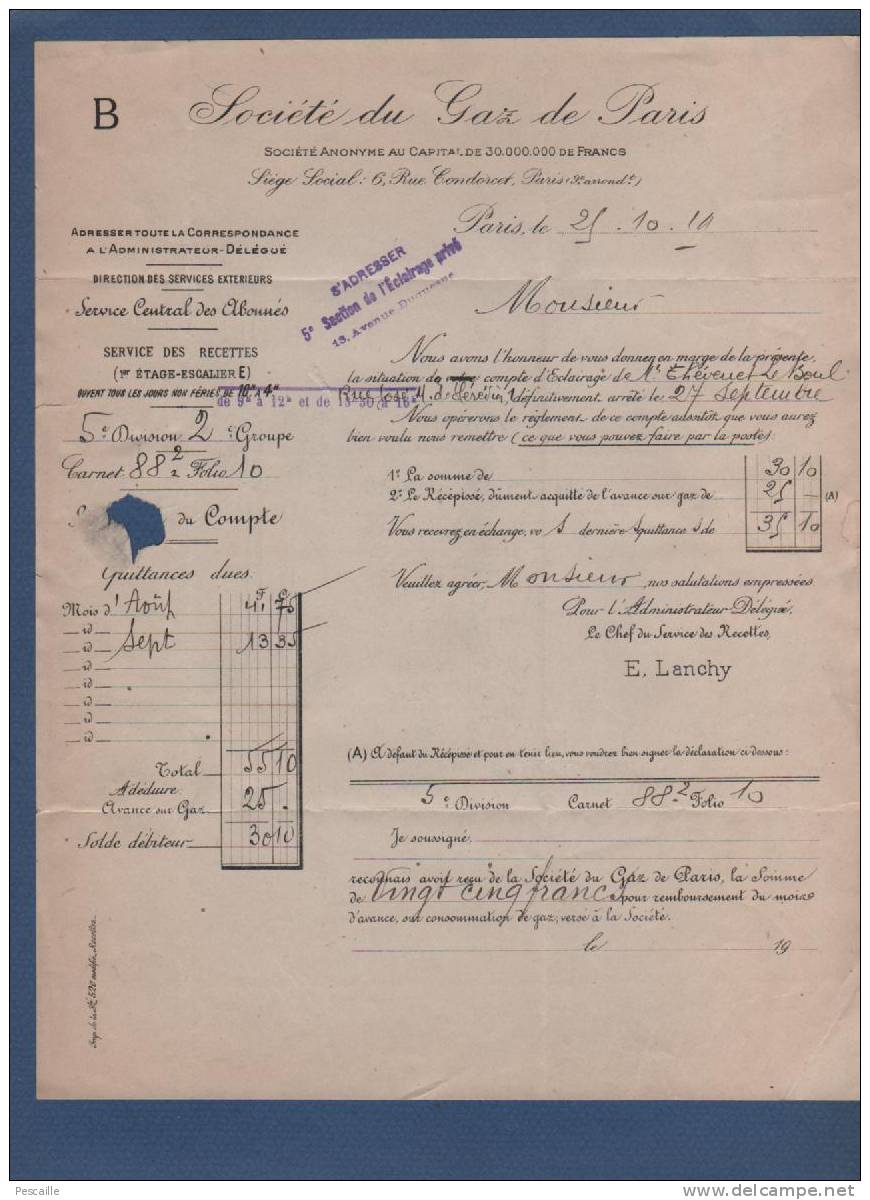 B
Société du Gaz de Paris
SOCIÉTÉ ANONYME AU CAPITAL DE 30.000.000 DE FRANCS
Siège Social: 6, Rue Condorcet, Paris (9e arrondt.)
Paris, le 25. 10. 19
ADRESSER TOUTE LA CORRESPONDANCE
A L'ADMINISTRATEUR-DÉLÉGUÉ
DIRECTION DES SERVICES EXTERIEURS
Service Central des Abonnés
SERVICE DES RECETTES
(1er ÉTAGE-ESCALIER E)
OUVERT TOUS LES JOURS NON FÉRIÉS DE 10h A 4h
de 9h à 12h et de 13h30 à 16h
5e Division 2 e Groupe
Carnet 88 2 Folio 10
du Compte
S'ADRESSER
5e Section de l'Éclairage privé
13, Avenue Duquesne
Monsieur
Nous avons l'honneur de vous donner en marge de la présente,
la situation de votre compte d'Eclairage de Me Thévenet Le Boul
Rue José M. de Hérédia, 1 définitivement arrêté le 27 Septembre
Nous opérerons le règlement de ce compte aussitôt que vous aurez
bien voulu nous remettre (ce que vous pouvez faire par la poste):
1º La somme de 30 10
2º Le Récépissé, dûment acquitté de l'avance sur gaz de 25 - (A)
Vous recevrez en échange, vos dernières quittances de 55 10
Quittances dues.
F C
Mois d' Août 41 75
id Sept 13 35
id
id
id
id
id
id
Total 55 10
A déduire
Avance sur Gaz 25 -
Solde débiteur 30 10
Veuillez agréer, Monsieur, nos salutations empressées
Pour l'Administrateur-Délégué,
Le Chef du Service des Recettes,
E. Lanchy
(A) A défaut du Récépissé et pour en tenir lieu, vous voudrez bien signer la déclaration ci-dessous:
5e Division Carnet 88-2 Folio 10
Je soussigné
reconnais avoir reçu de la Société du Gaz de Paris, la Somme
de Vingt cinq francs pour remboursement du mois
d'avance, sur consommation de gaz, versé à la Société.
le 19
Imp. de la Sté 520 modifié, Recettes
Pescaille
www.delcampe.net